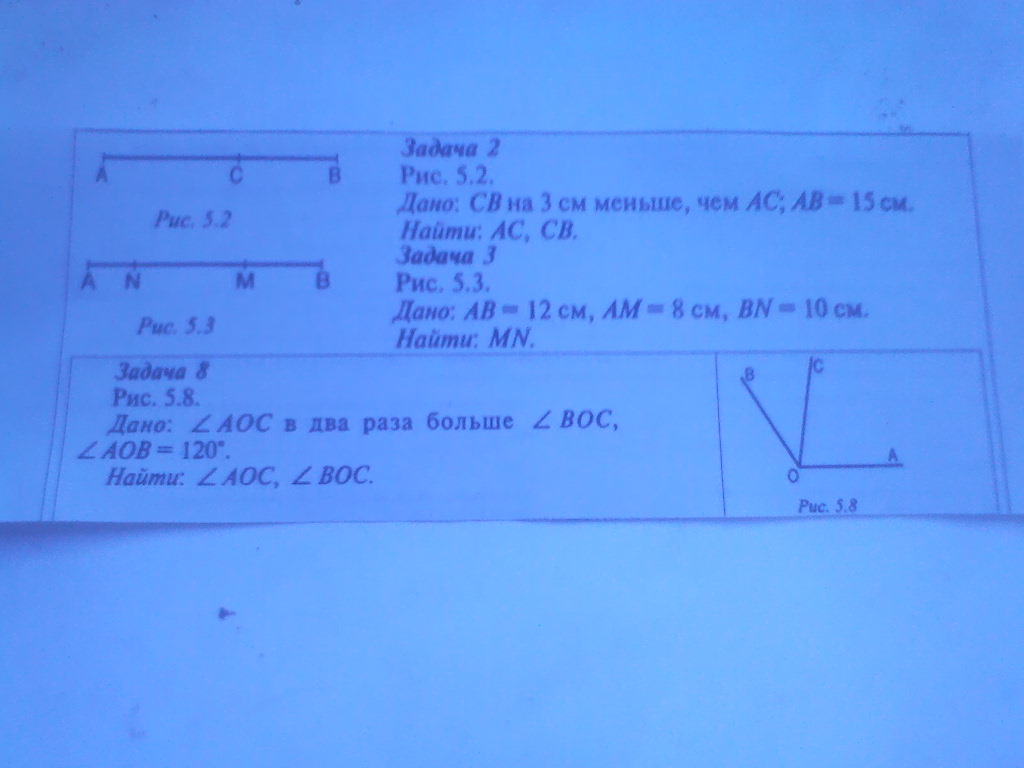 A C B
Рис. 5.2
A N M B
Рис. 5.3
Задача 2
Рис. 5.2.
Дано: CB на 3 см меньше, чем AC; AB = 15 см.
Найти: AC, CB.
Задача 3
Рис. 5.3.
Дано: AB = 12 см, AM = 8 см, BN = 10 см.
Найти: MN.
Задача 8
Рис. 5.8.
Дано: ∠ AOC в два раза больше ∠ BOC,
∠ AOB = 120°.
Найти: ∠ AOC, ∠ BOC.
B C
A
O
Рис. 5.8